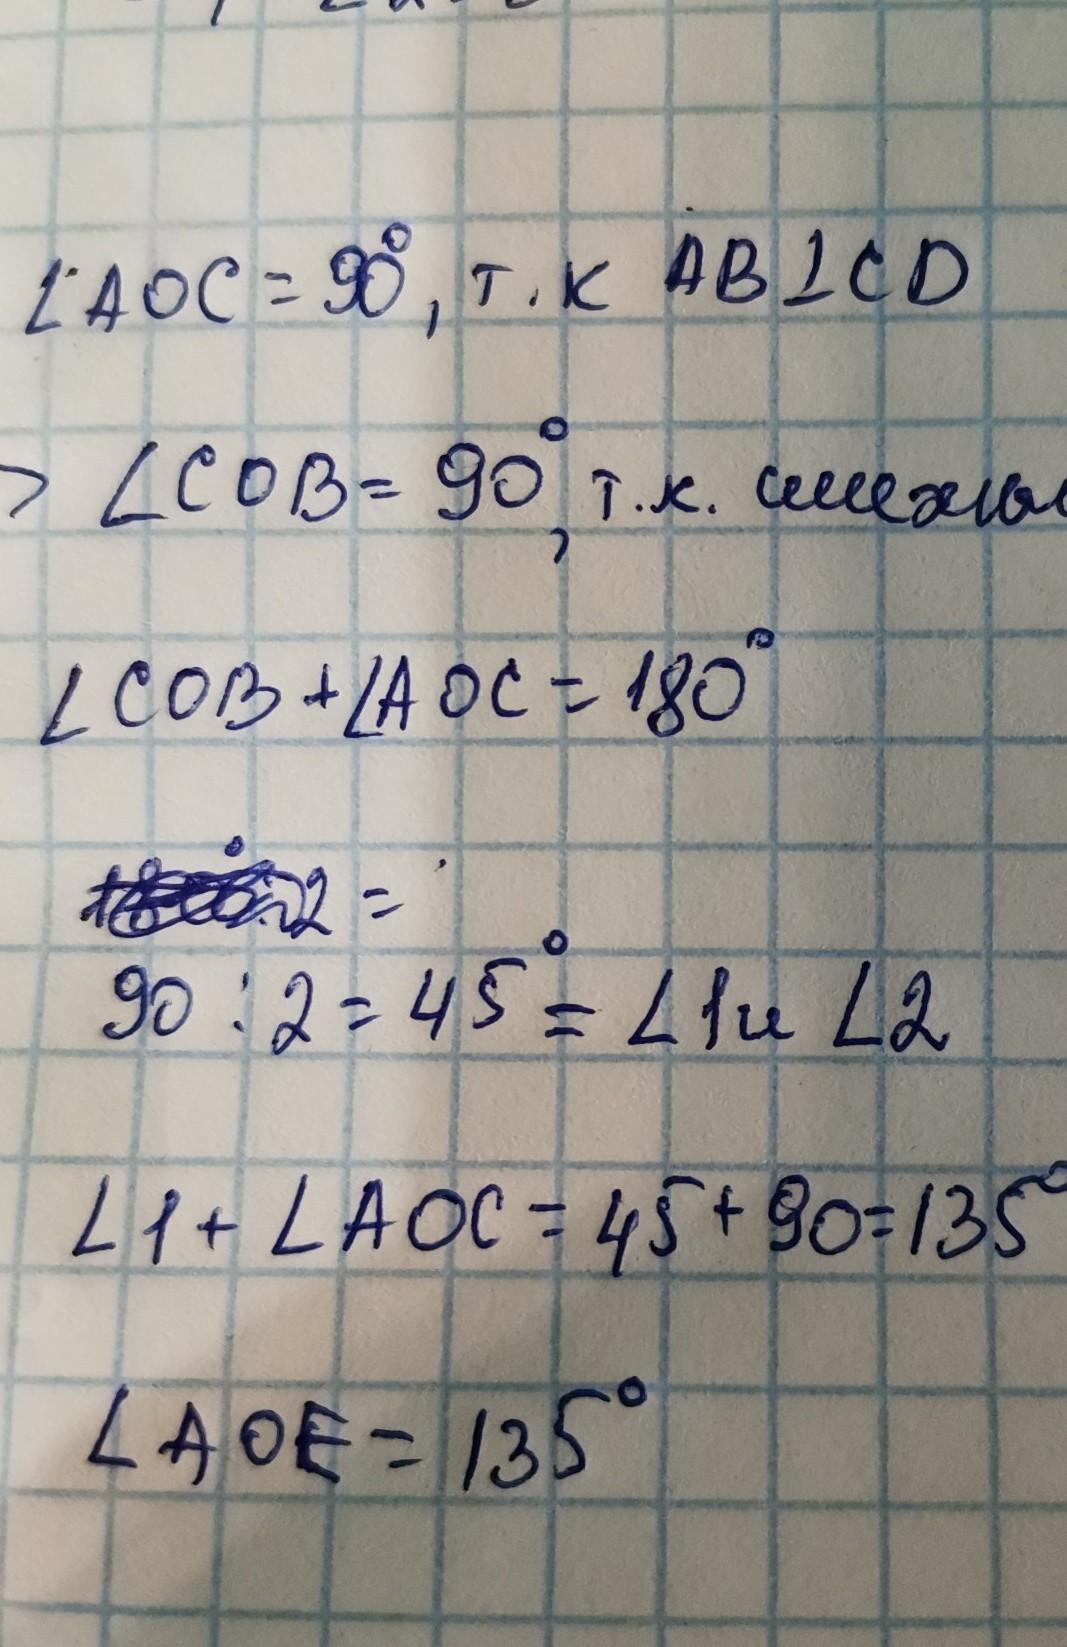 ∠AOC = 90°, т.к AB⊥CD
> ∠COB = 90°, т.к.
∠COB + ∠AOC = 180°
2 =
90 : 2 = 45° = ∠1 и ∠2
∠1 + ∠AOC = 45 + 90 = 135°
∠AOE = 135°